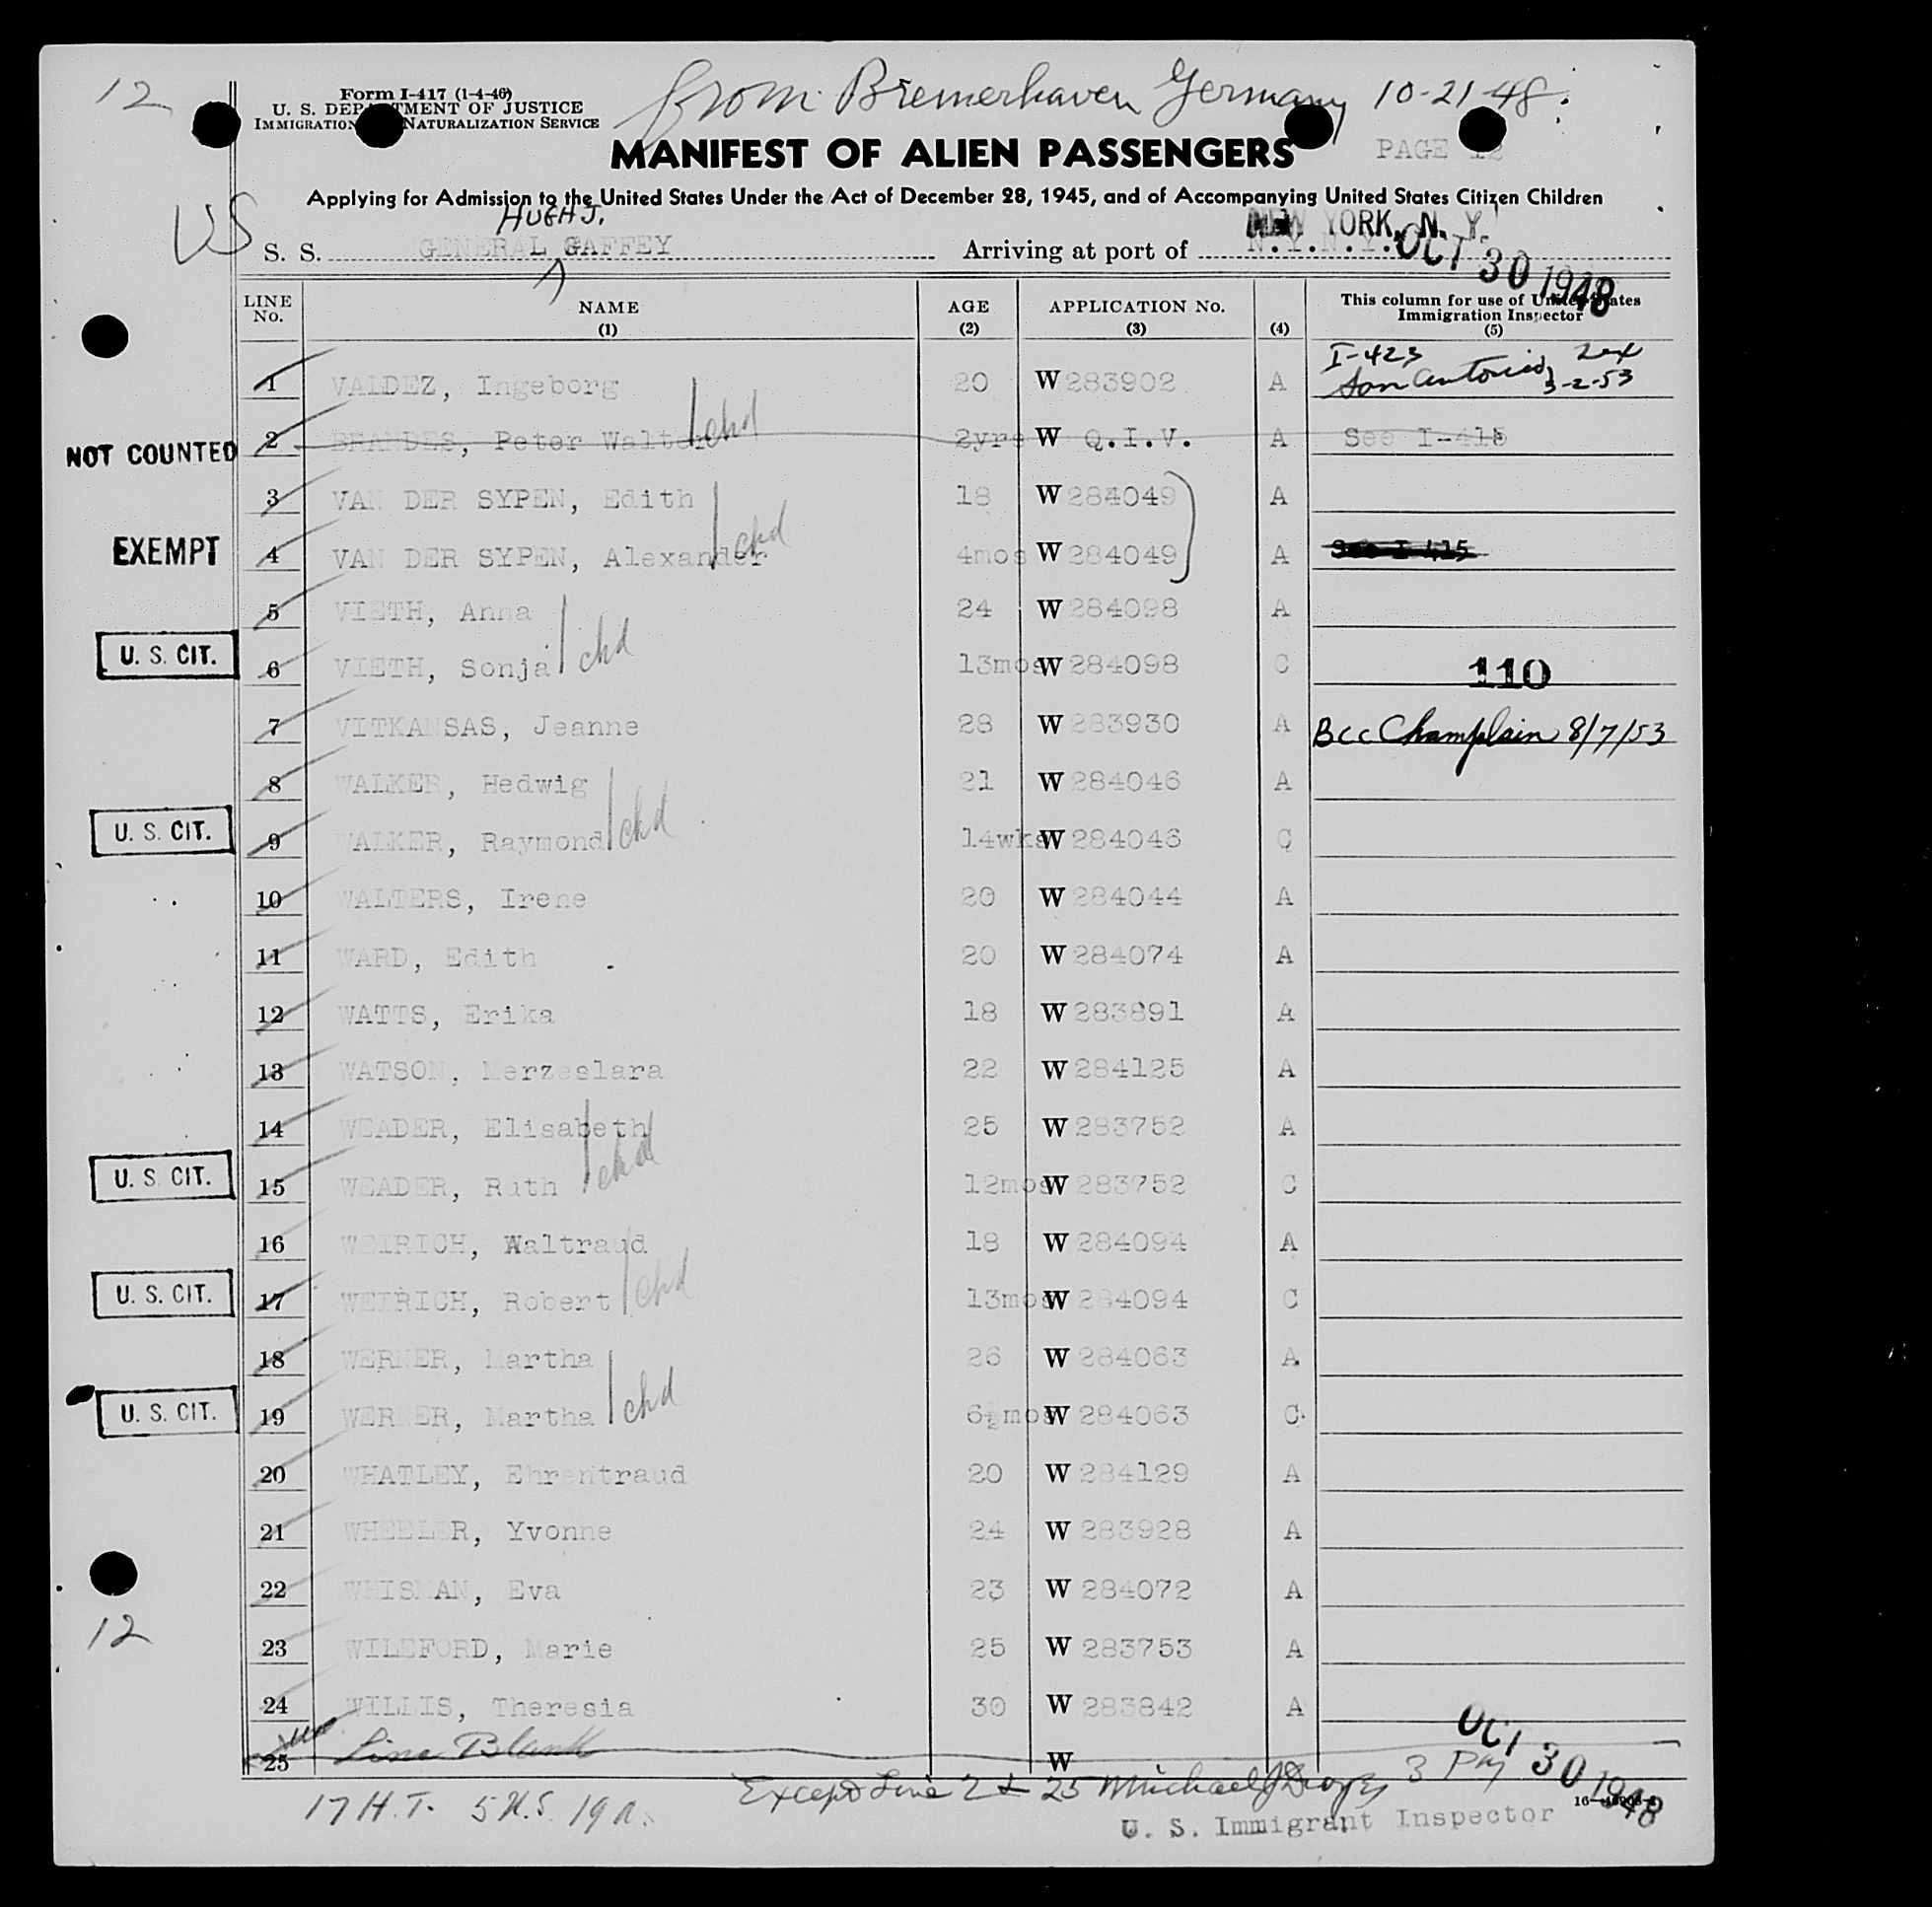 12
Form I-417 (1-4-46)
U. S. DEPARTMENT OF JUSTICE
IMMIGRATION NATURALIZATION SERVICE
from Bremerhaven Germany 10-21-48.
MANIFEST OF ALIEN PASSENGERS PAGE 12
Applying for Admission to the United States Under the Act of December 28, 1945, and of Accompanying United States Citizen Children
US
HUGH J.
S. S. GENERAL GAFFEY Arriving at port of N.Y.N.Y.
NEW YORK, N. Y. OCT 30 1948
LINE No. NAME (1) AGE (2) APPLICATION No. (3) (4) This column for use of United States Immigration Inspector (5)
1 VALDEZ, Ingeborg 20 W 283902 A I-423 San Antonio, Tex 3-2-53
NOT COUNTED 2 BRANDES, Peter Walter chd 2yrs W Q.I.V. A See I-415
3 VAN DER SYPEN, Edith 18 W 284049 A
EXEMPT 4 VAN DER SYPEN, Alexander chd 4mos W 284049 A See I 415
5 VIETH, Anna 24 W 284098 A
U. S. CIT. 6 VIETH, Sonja chd 13mos W 284098 C 110
7 VITKANSAS, Jeanne 28 W 283930 A Bcc Champlain 8/7/53
8 WALKER, Hedwig 21 W 284046 A
U. S. CIT. 9 WALKER, Raymond chd 14wks W 284046 C
10 WALTERS, Irene 20 W 284044 A
11 WARD, Edith 20 W 284074 A
12 WATTS, Erika 18 W 283891 A
13 WATSON, Merzeslara 22 W 284125 A
14 WEADER, Elisabeth 25 W 283752 A
U. S. CIT. 15 WEADER, Ruth chd 12mos W 283752 C
16 WEIRICH, Waltraud 18 W 284094 A
U. S. CIT. 17 WEIRICH, Robert chd 13mos W 284094 C
18 WERNER, Martha 26 W 284063 A
U. S. CIT. 19 WERNER, Martha chd 6½mos W 284063 C
20 WHATLEY, Ehrentraud 20 W 284129 A
21 WHEELER, Yvonne 24 W 283928 A
22 WHISMAN, Eva 23 W 284072 A
23 WILEFORD, Marie 25 W 283753 A
24 WILLIS, Theresia 30 W 283842 A
25 Line Blank W
12
OCT 30 1948
3 PM
17 H.T. 5 U.S. 19 A. Except Line 2 & 25 Michael J
U. S. Immigrant Inspector